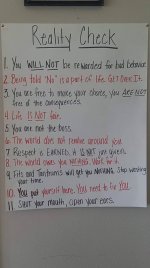 Reality Check
1. You WILL NOT be rewarded for bad behavior.
2. Being told "No" is a part of life. GET OVER IT.
3. You are free to make your choices, you ARE NOT
free of the consequences.
4. Life IS NOT fair.
5. You are not the boss.
6. The world does not revolve around you.
7. Respect is EARNED, it IS NOT just given.
8. The world owes you NOTHING. Work for it.
9. Fits and Tantrums will get you NOTHING. Stop wasting
your time.
10. You put yourself here. YOU need to fix YOU.
11. SHUT your mouth, open your ears.